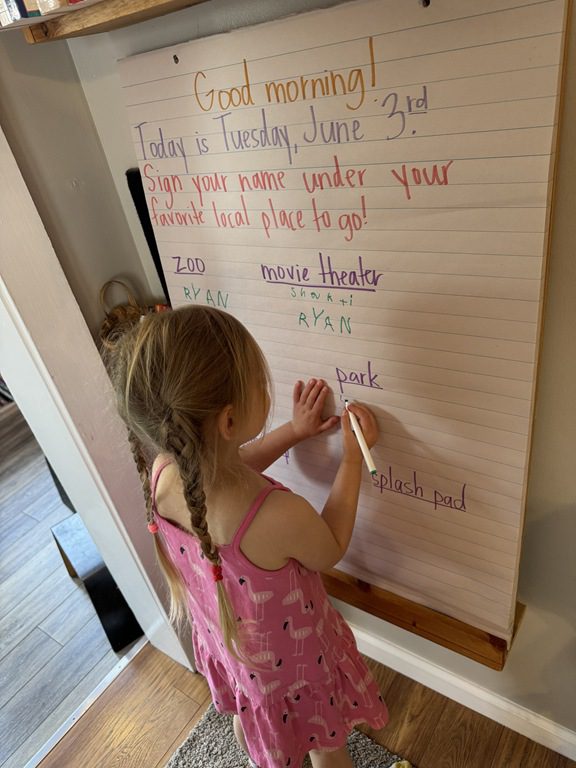 Good morning!
Today is Tuesday, June 3rd.
Sign your name under your
favorite local place to go!
zoo movie theater
RYAN Shouk+i
RYAN
park
splash pad